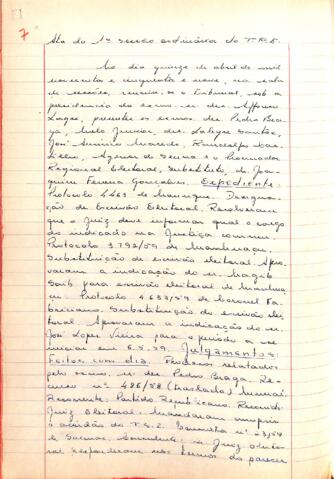 7
Ata da 1ª sessão ordinária do T.R.E.
No dia quinze de abril de mil
novecentos e cinquenta e nove, na sala
de sessões, reuniu-se o Tribunal, sob a
presidência do exmo. sr. des. Affonso
Lages, presentes os exmos. des. Pedro Bra-
ga, Mello Junior, drs.
José Americo Macedo,
e o Procurador
Regional Eleitoral, substituto, dr. Joa-
quim Ferreira Gonçalves. Expediente:
Protocolo 4463 de Designa-
ção de Escrivão Eleitoral. Resolveram
que o Juiz deve informar qual o cargo
do indicado na Justiça comum.
Protocolo 3.792/59 de
Substituição de escrivão eleitoral. Apro-
varam a indicação do sr.
para escrivão eleitoral de
Protocolo 4683/59 de Coronel Fa-
briciano. Substituição de escrivão elei-
toral. Aprovaram a indicação do sr.
José Lopes Vieira para o período a se
iniciar em 6.5.59. Julgamentos:
Feitos com dia. Processos relatados
pelo exmo. sr. des. Pedro Braga. Re-
curso nº 486/58 (traslado)
Recorrente: Partido Republicano. Recorrido:
Juiz Eleitoral. Mandaram cumprir
o acórdão do T.S.E. Consulta nº
de Juiz eleito-
ral. Responderam nos termos do parecer